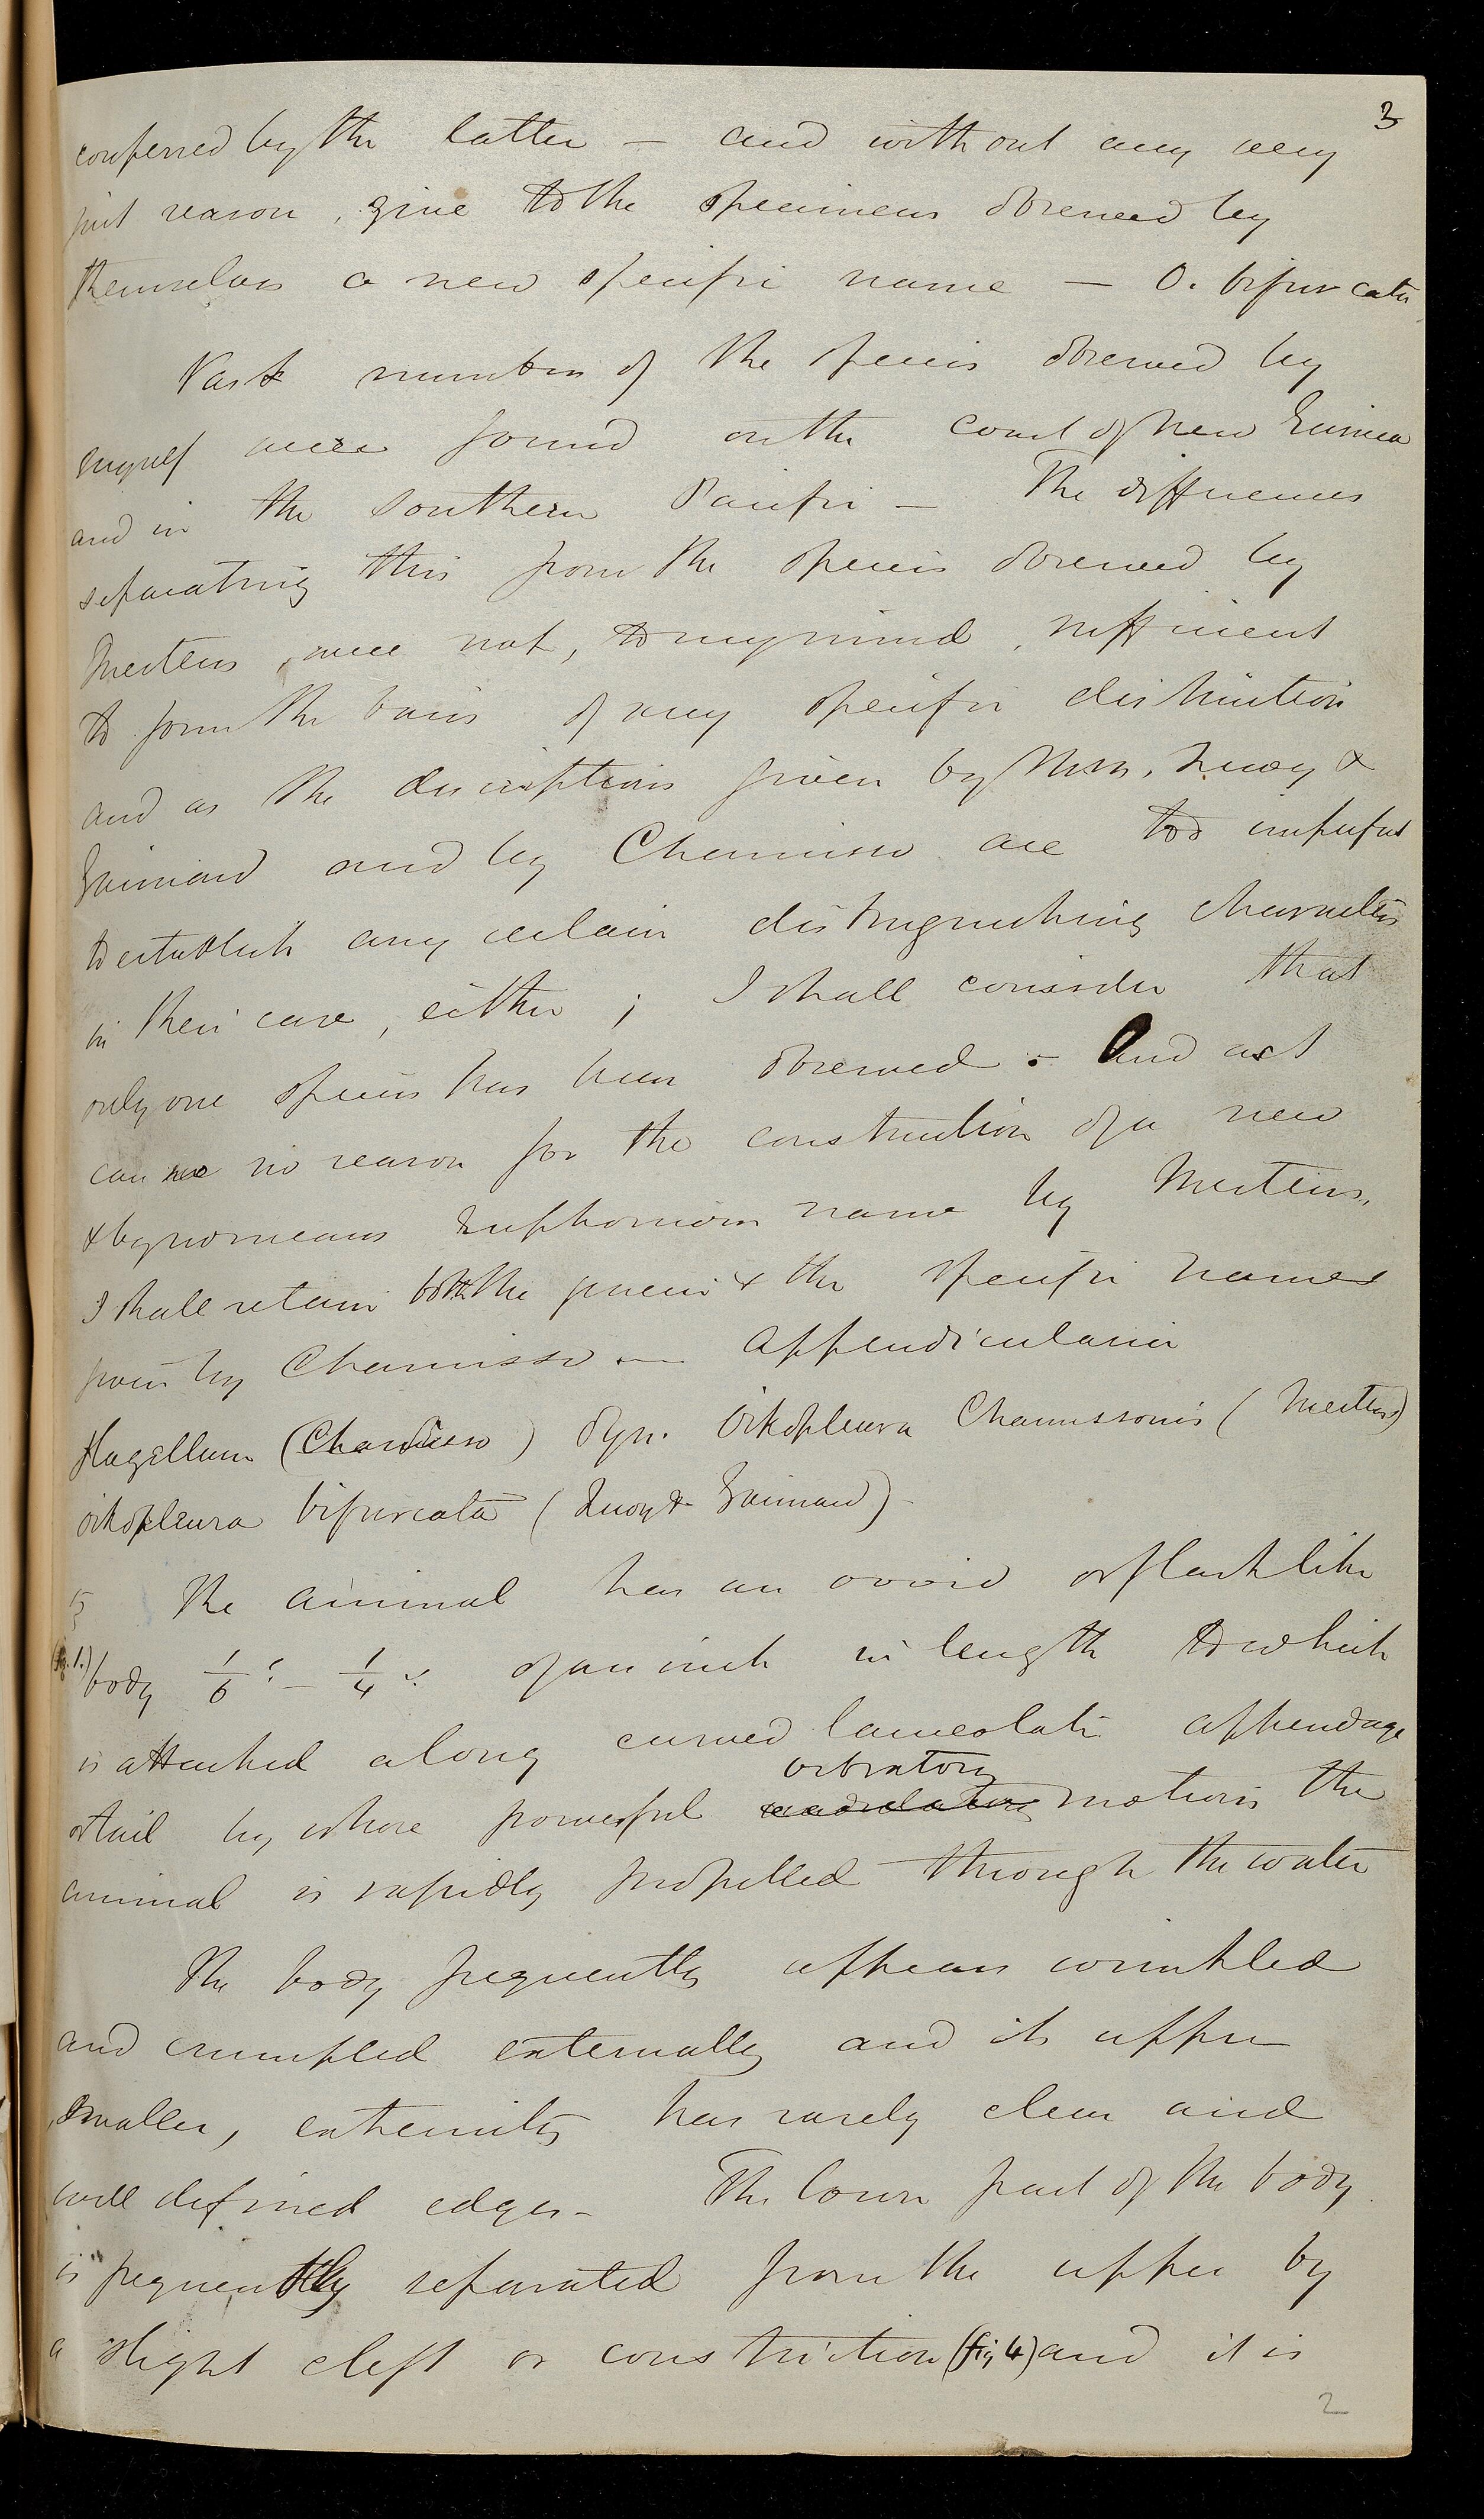 3
conferred by the latter — and without any very
just reason, give to the specimens observed by
themselves a new specific name — O. bifurcata
Vast numbers of the species observed by
myself were found on the coast of New Guinea
and in the Southern Pacific — The differences
separating this from the species observed by
Mertens, were not, to my mind, sufficient
to form the basis of any specific distinction
and as the descriptions given by MM. Quoy &
Gaimard and by Chamisso are too imperfect
to establish any certain distinguishing characters
in their case, either; I shall consider that
only one species has been observed. — And as I
can see no reason for the construction of a new
& by no means euphonious name by Mertens,
I shall retain both the generic & the specific names
given by Chamisso. — Appendicularia
flagellum (Chamisso) Syn. Oikopleura Chamissonis (Mertens)
Oikopleura bifurcata (Quoy & Gaimard) —
5 The animal has an ovoid or flask like
(fig. 1.) body 1/6 – 1/4 of an inch in length to which
is attached a long curved lanceolate appendage
vibratory
or tail by whose powerful undulatory motions the
animal is rapidly propelled through the water
The body frequently appears wrinkled
and crumpled externally and its upper
smaller, extremity has rarely clear and
well defined edges —
The lower part of the body
is frequently separated from the upper by
a slight cleft or constriction (fig 4) and it is
2